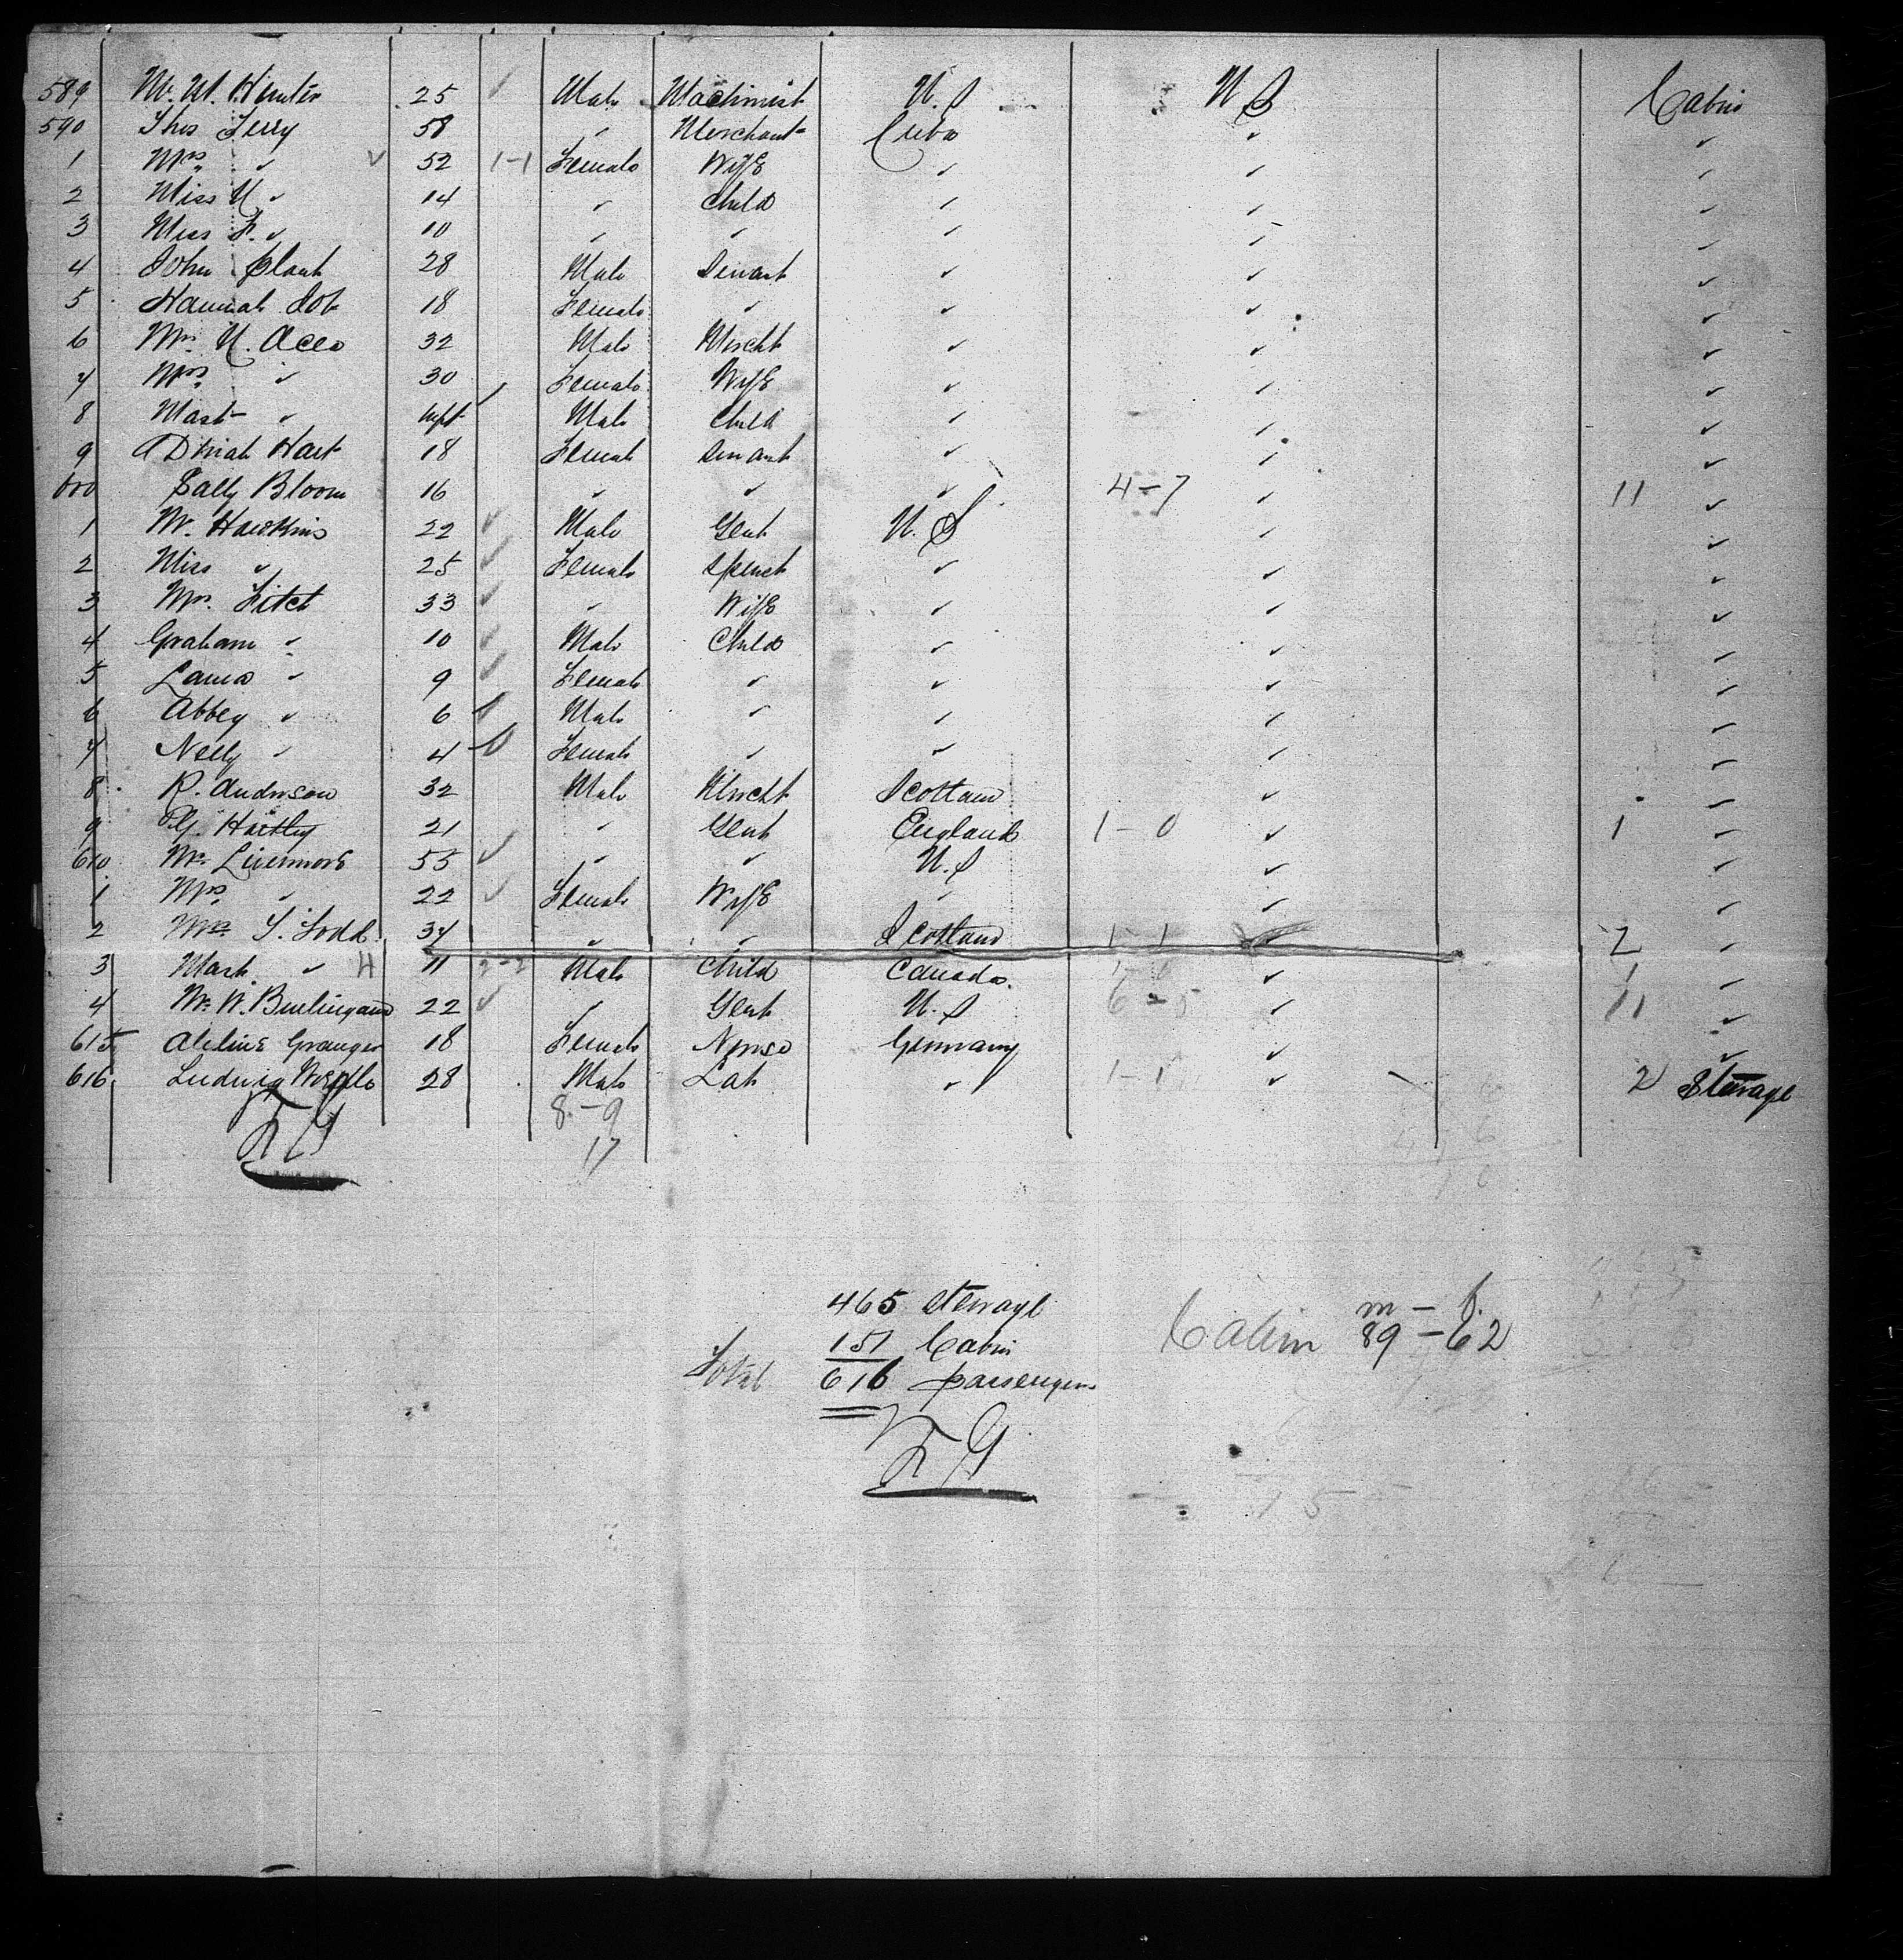 589 Mr. W. Hunter 25 ✓ Male Machinist U.S U S Cabin
590 Thos Terry 58 ✓ Merchant Cuba ✓ ✓
1 Mrs ✓ ✓ 52 1-1 Female Wife ✓ ✓ ✓
2 Miss M ✓ 14 ✓ Child ✓ ✓ ✓
3 Miss F. ✓ 10 ✓ ✓ ✓ ✓ ✓
4 John 28 Male Servant ✓ ✓ ✓
5 Hannah 18 Female ✓ ✓ ✓ ✓
6 Mr. M. Acea 32 Male Mercht ✓ ✓ ✓
7 Mrs ✓ 30 Female Wife ✓ ✓ ✓
8 Mast ✓ Inft Male Child ✓ ✓ ✓
9 Dinah Hart 18 Female Servant ✓ ✓ ✓
600 Sally Bloom 16 ✓ ✓ ✓ 4-7 ✓ 11 ✓
1 Mr. Hawkins 22 ✓ Male Gent U.S ✓ ✓
2 Miss ✓ 25 ✓ Female Spinst ✓ ✓ ✓
3 Mrs. Fitch 33 ✓ ✓ Wife ✓ ✓ ✓
4 Graham ✓ 10 ✓ Male Child ✓ ✓ ✓
5 Laura ✓ 9 ✓ Female ✓ ✓ ✓ ✓
6 Abbey ✓ 6 Male ✓ ✓ ✓ ✓
7 Nelly ✓ 4 Female ✓ ✓ ✓ ✓
8 R. Anderson 32 Male Mercht Scotland ✓ ✓
9 Hartley 21 ✓ Gent England 1-0 ✓ 1 ✓
610 Mr. Livermore 55 ✓ ✓ ✓ U.S ✓ ✓
1 Mrs ✓ 22 ✓ Female Wife ✓ ✓ ✓
2 Mrs T. Todd 34 ✓ ✓ Scotland 1-1 ✓ 2 ✓
3 Mast ✓ 11 2-2 Male Child Canada. ✓ 1 ✓
4 Mr. W. Burlingame 22 ✓ ✓ Gent U.S 6-5 ✓ 11 ✓
615 Adeline Granger 18 Female Nurse Germany ✓ ✓
616 Ludwig 28 Male Lab ✓ 1-1 ✓ 2 Steerage
8-9
17
465 Steerage
151 Cabin
Total 616 passengers
m - f.
Cabin 89-62